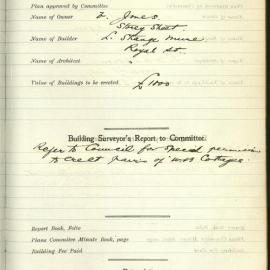 Plan approved by Committee
Name of Owner F. Jones
Storey Street
Name of Builder L. Strange
Royal St.
Name of Architect "
Value of Buildings to be erected. £1000
Building Surveyor's Report to Committee.
Refer to Council for Special permission
to erect pair of W.B Cottages
Report Book, Folio
Plans Committee Minute Book, page
Building Fee Paid